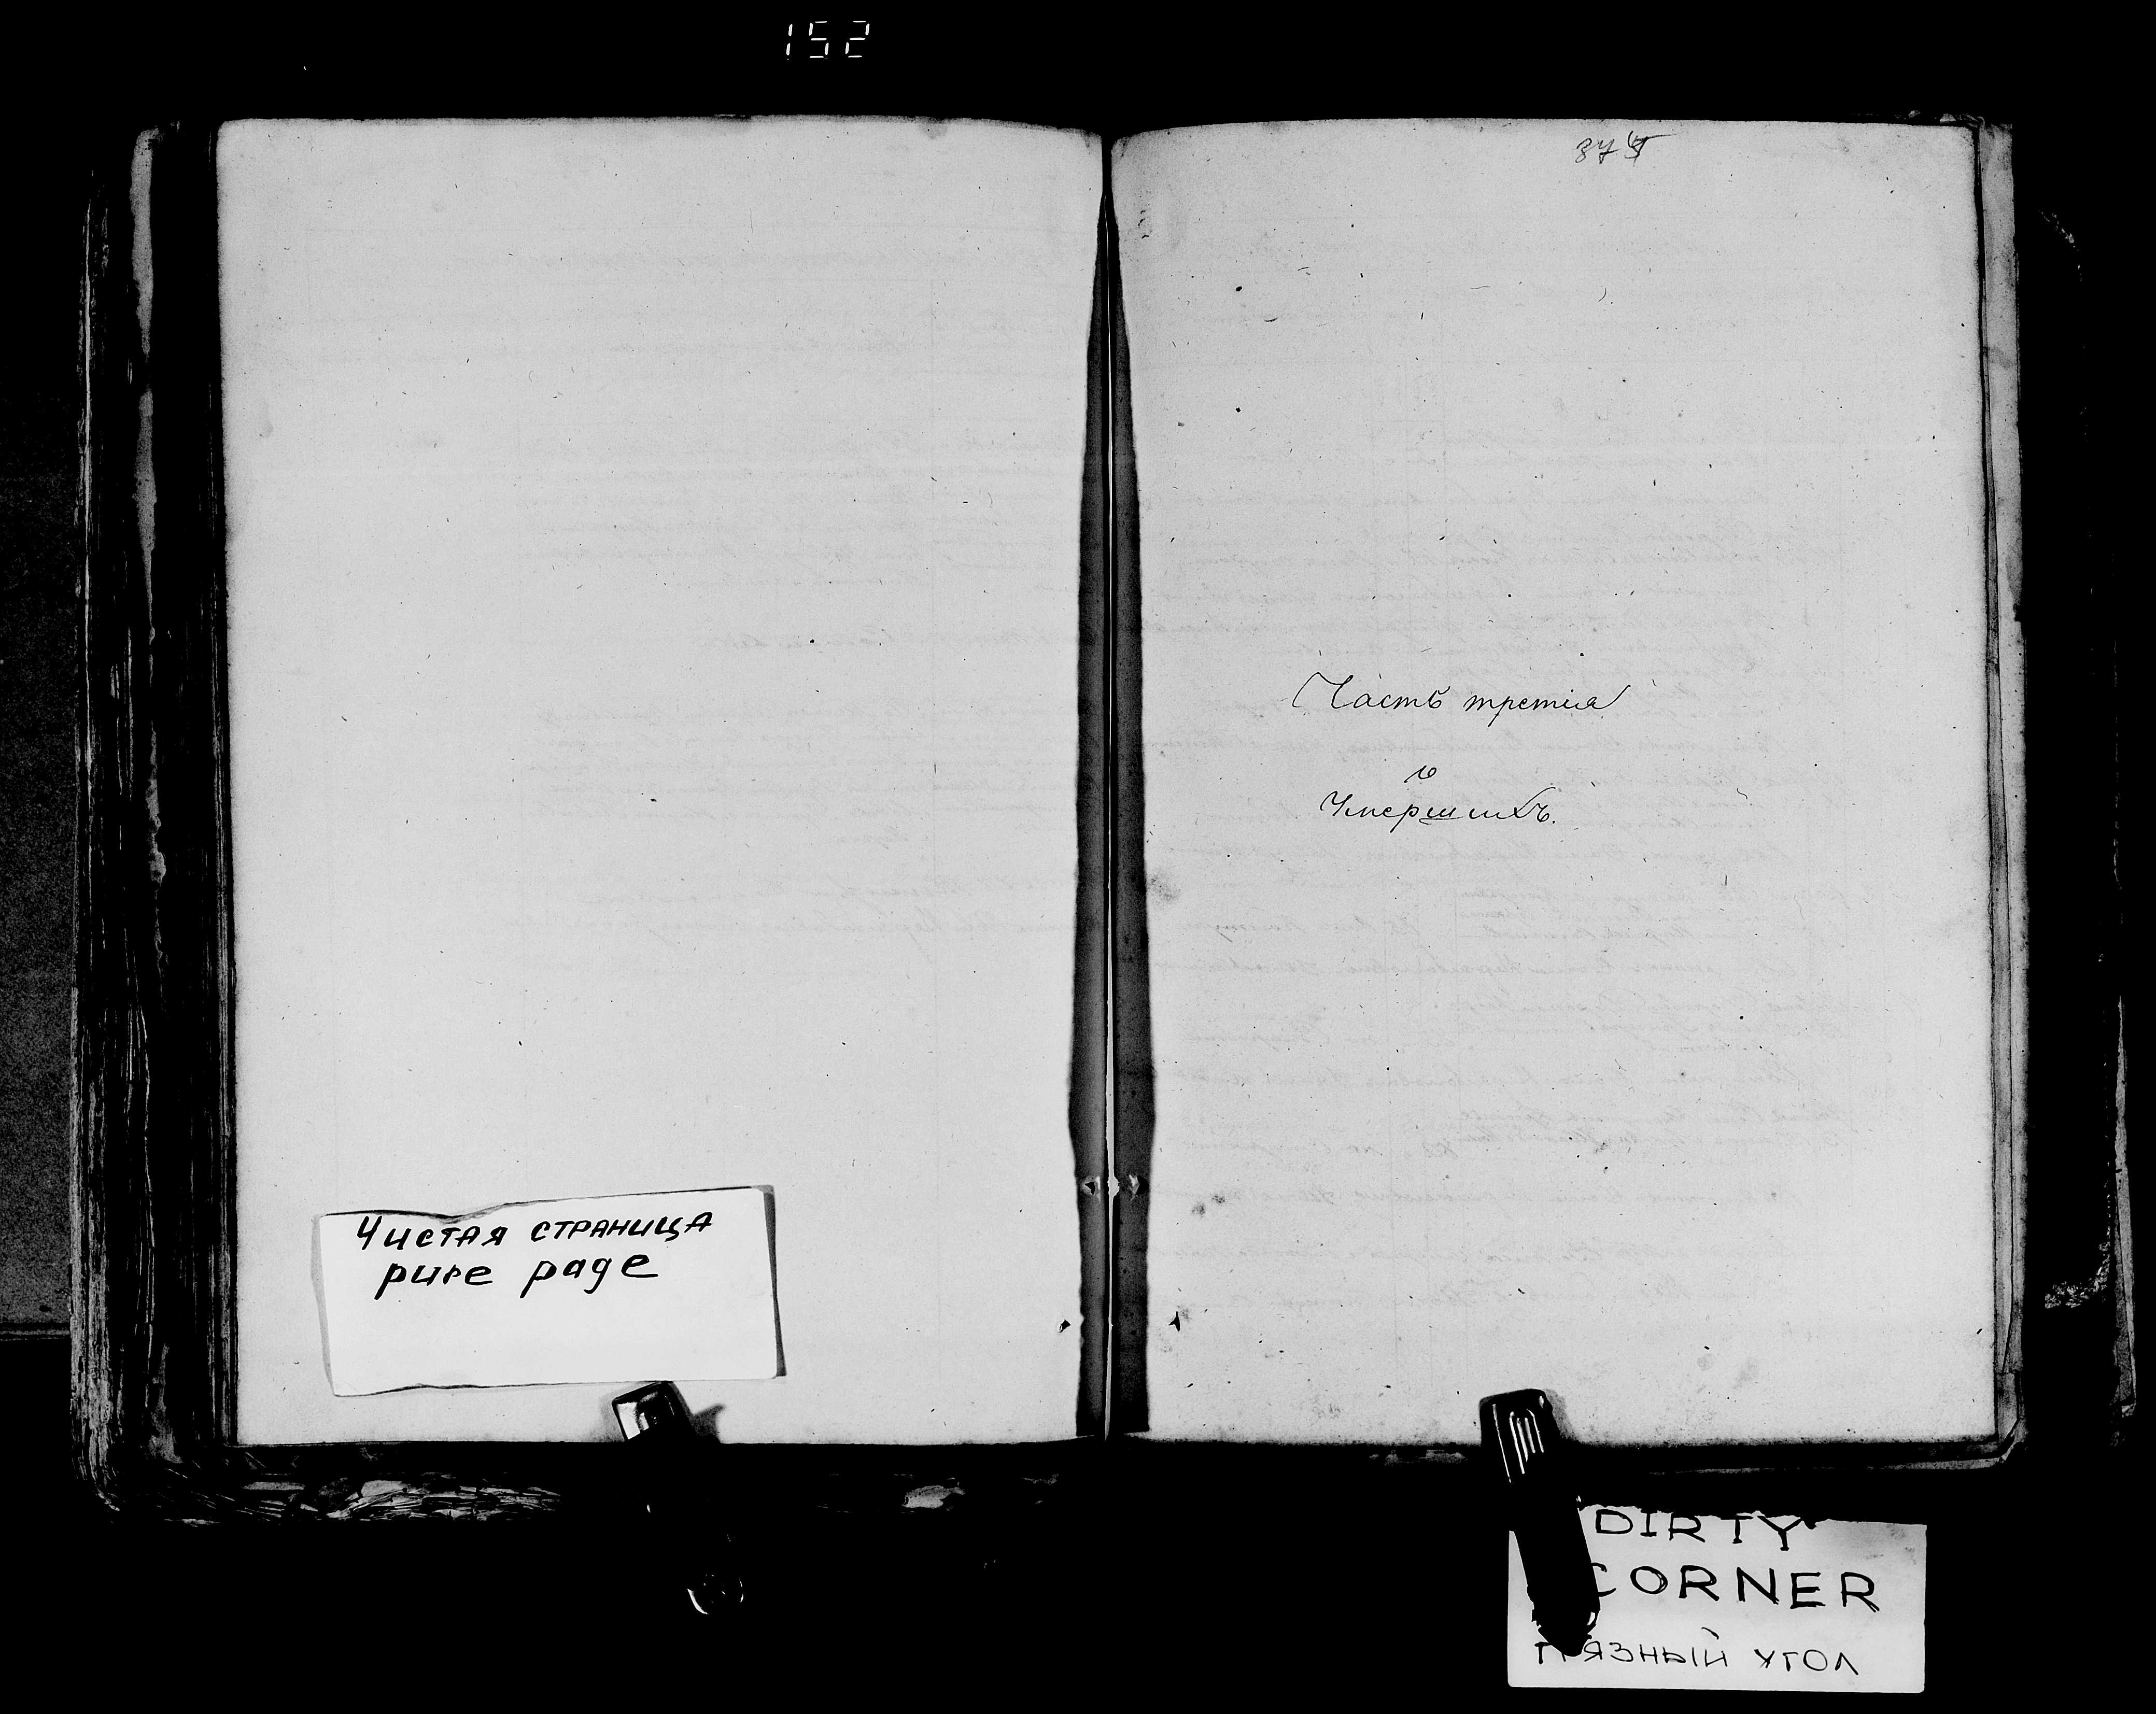 152
Чистая страница
pure page
Часть третiя
о
Умершихъ.
DIRTY
CORNER
ГРЯЗНЫЙ УГОЛ